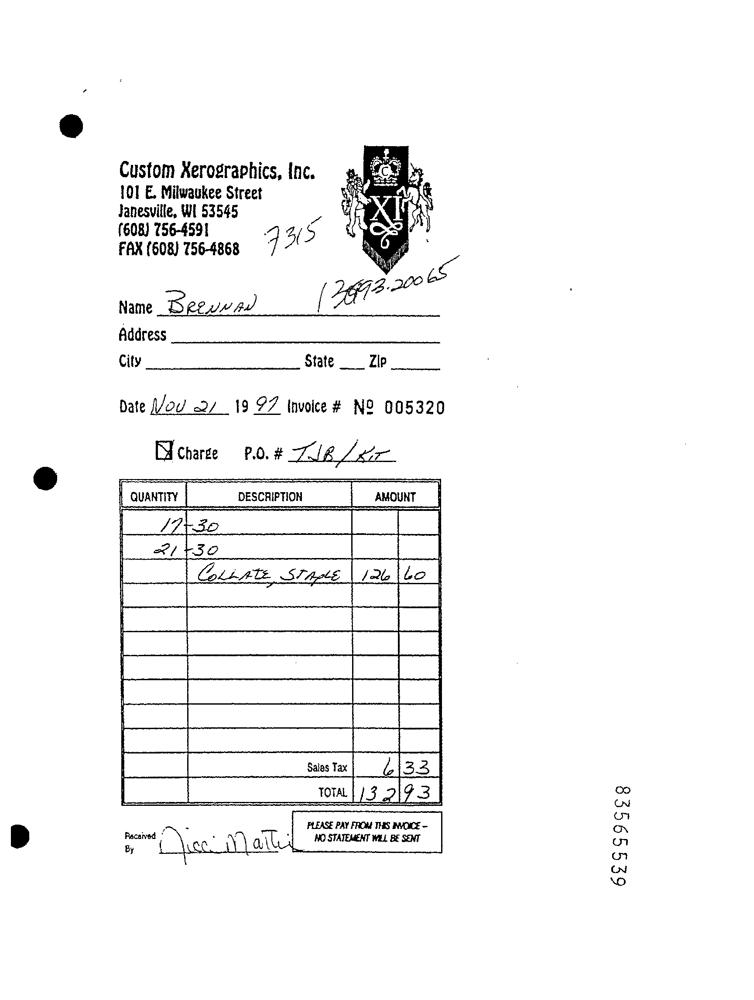 Custom Xerographics, Inc.
101 E. Milwaukee Street
Janesville, WI 53545
(608) 756-4591
FAX (608) 756-4868
7315
C
XI
Name BRENNAN
Address
City State Zip
Date NOV 21 19 97 Invoice # Nº 005320
Charge P.O. # TJB/KIT
QUANTITY DESCRIPTION AMOUNT
17-30
21-30
COLLATE, STAPLE 126 60
Sales Tax 6 33
TOTAL 132 93
Received By Nicci
PLEASE PAY FROM THIS INVOICE –
NO STATEMENT WILL BE SENT
83565539